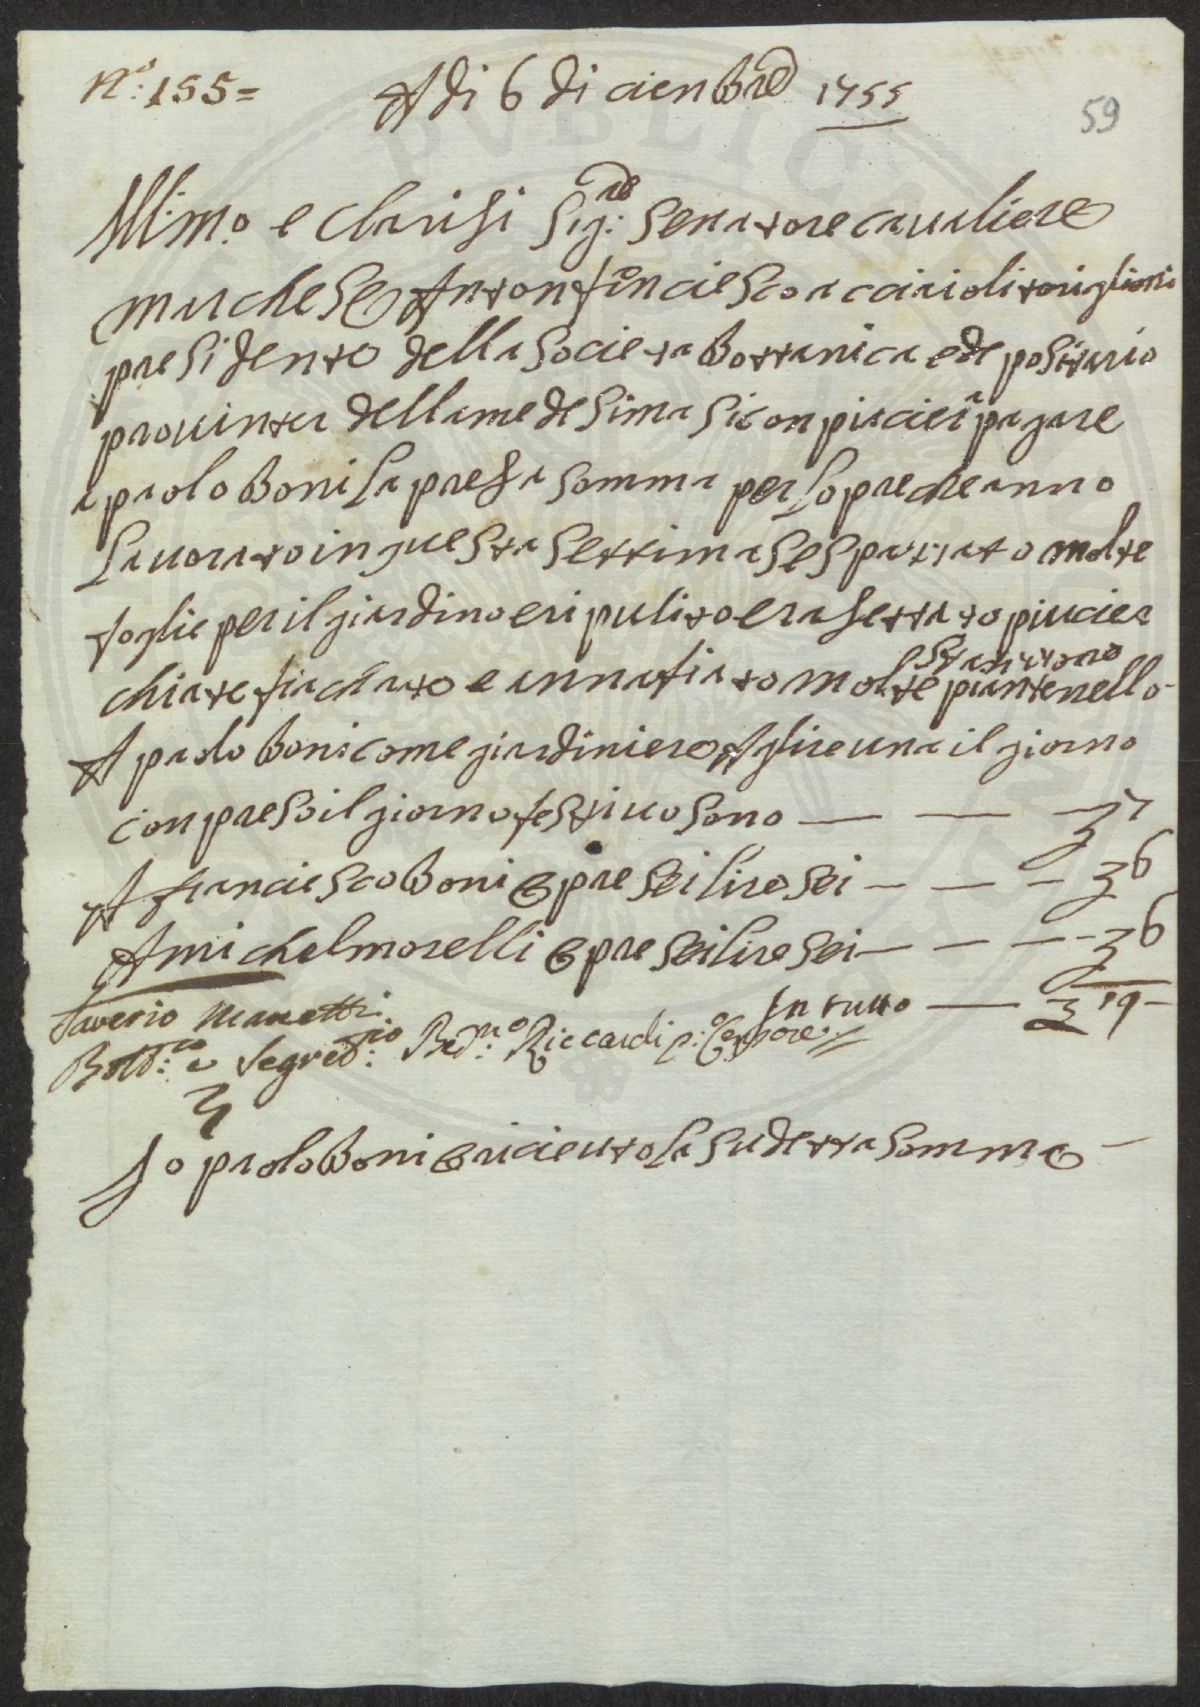 N.º: 155=
A di 6 di cienbre 1755
59
Ill:m.o e Clarisi Sig:re Senatore cavaliere
marchese Anton francesco acciaioli toriglioni
presidente della Societa Bottanica e de positario
provinter della mede Sima Si conpiacier pagare
a paolo Boni La presa Somma per Lopre che anno
Lavorato in questa Settima Se Spazzato molte
foglie per il giardino e ri pulito e ra Settato piu cier
chiate fiachato e annafiato molte piante nello
Stanzone
A paolo Boni come giardiniere A lire una il giorno
conpreso il giorno festivo Sono — — — 7
A francie Sco Boni Opre Sei lire Sei — — — 6
A michel morelli Opre Sei lire Sei — — — 6
In tutto — 19 -
Saverio Manetti
Bott:co e Segret:rio Bed:no Riccardi p:o Censore
Io paolo Boni O ricieuto La Sudetta Somma —